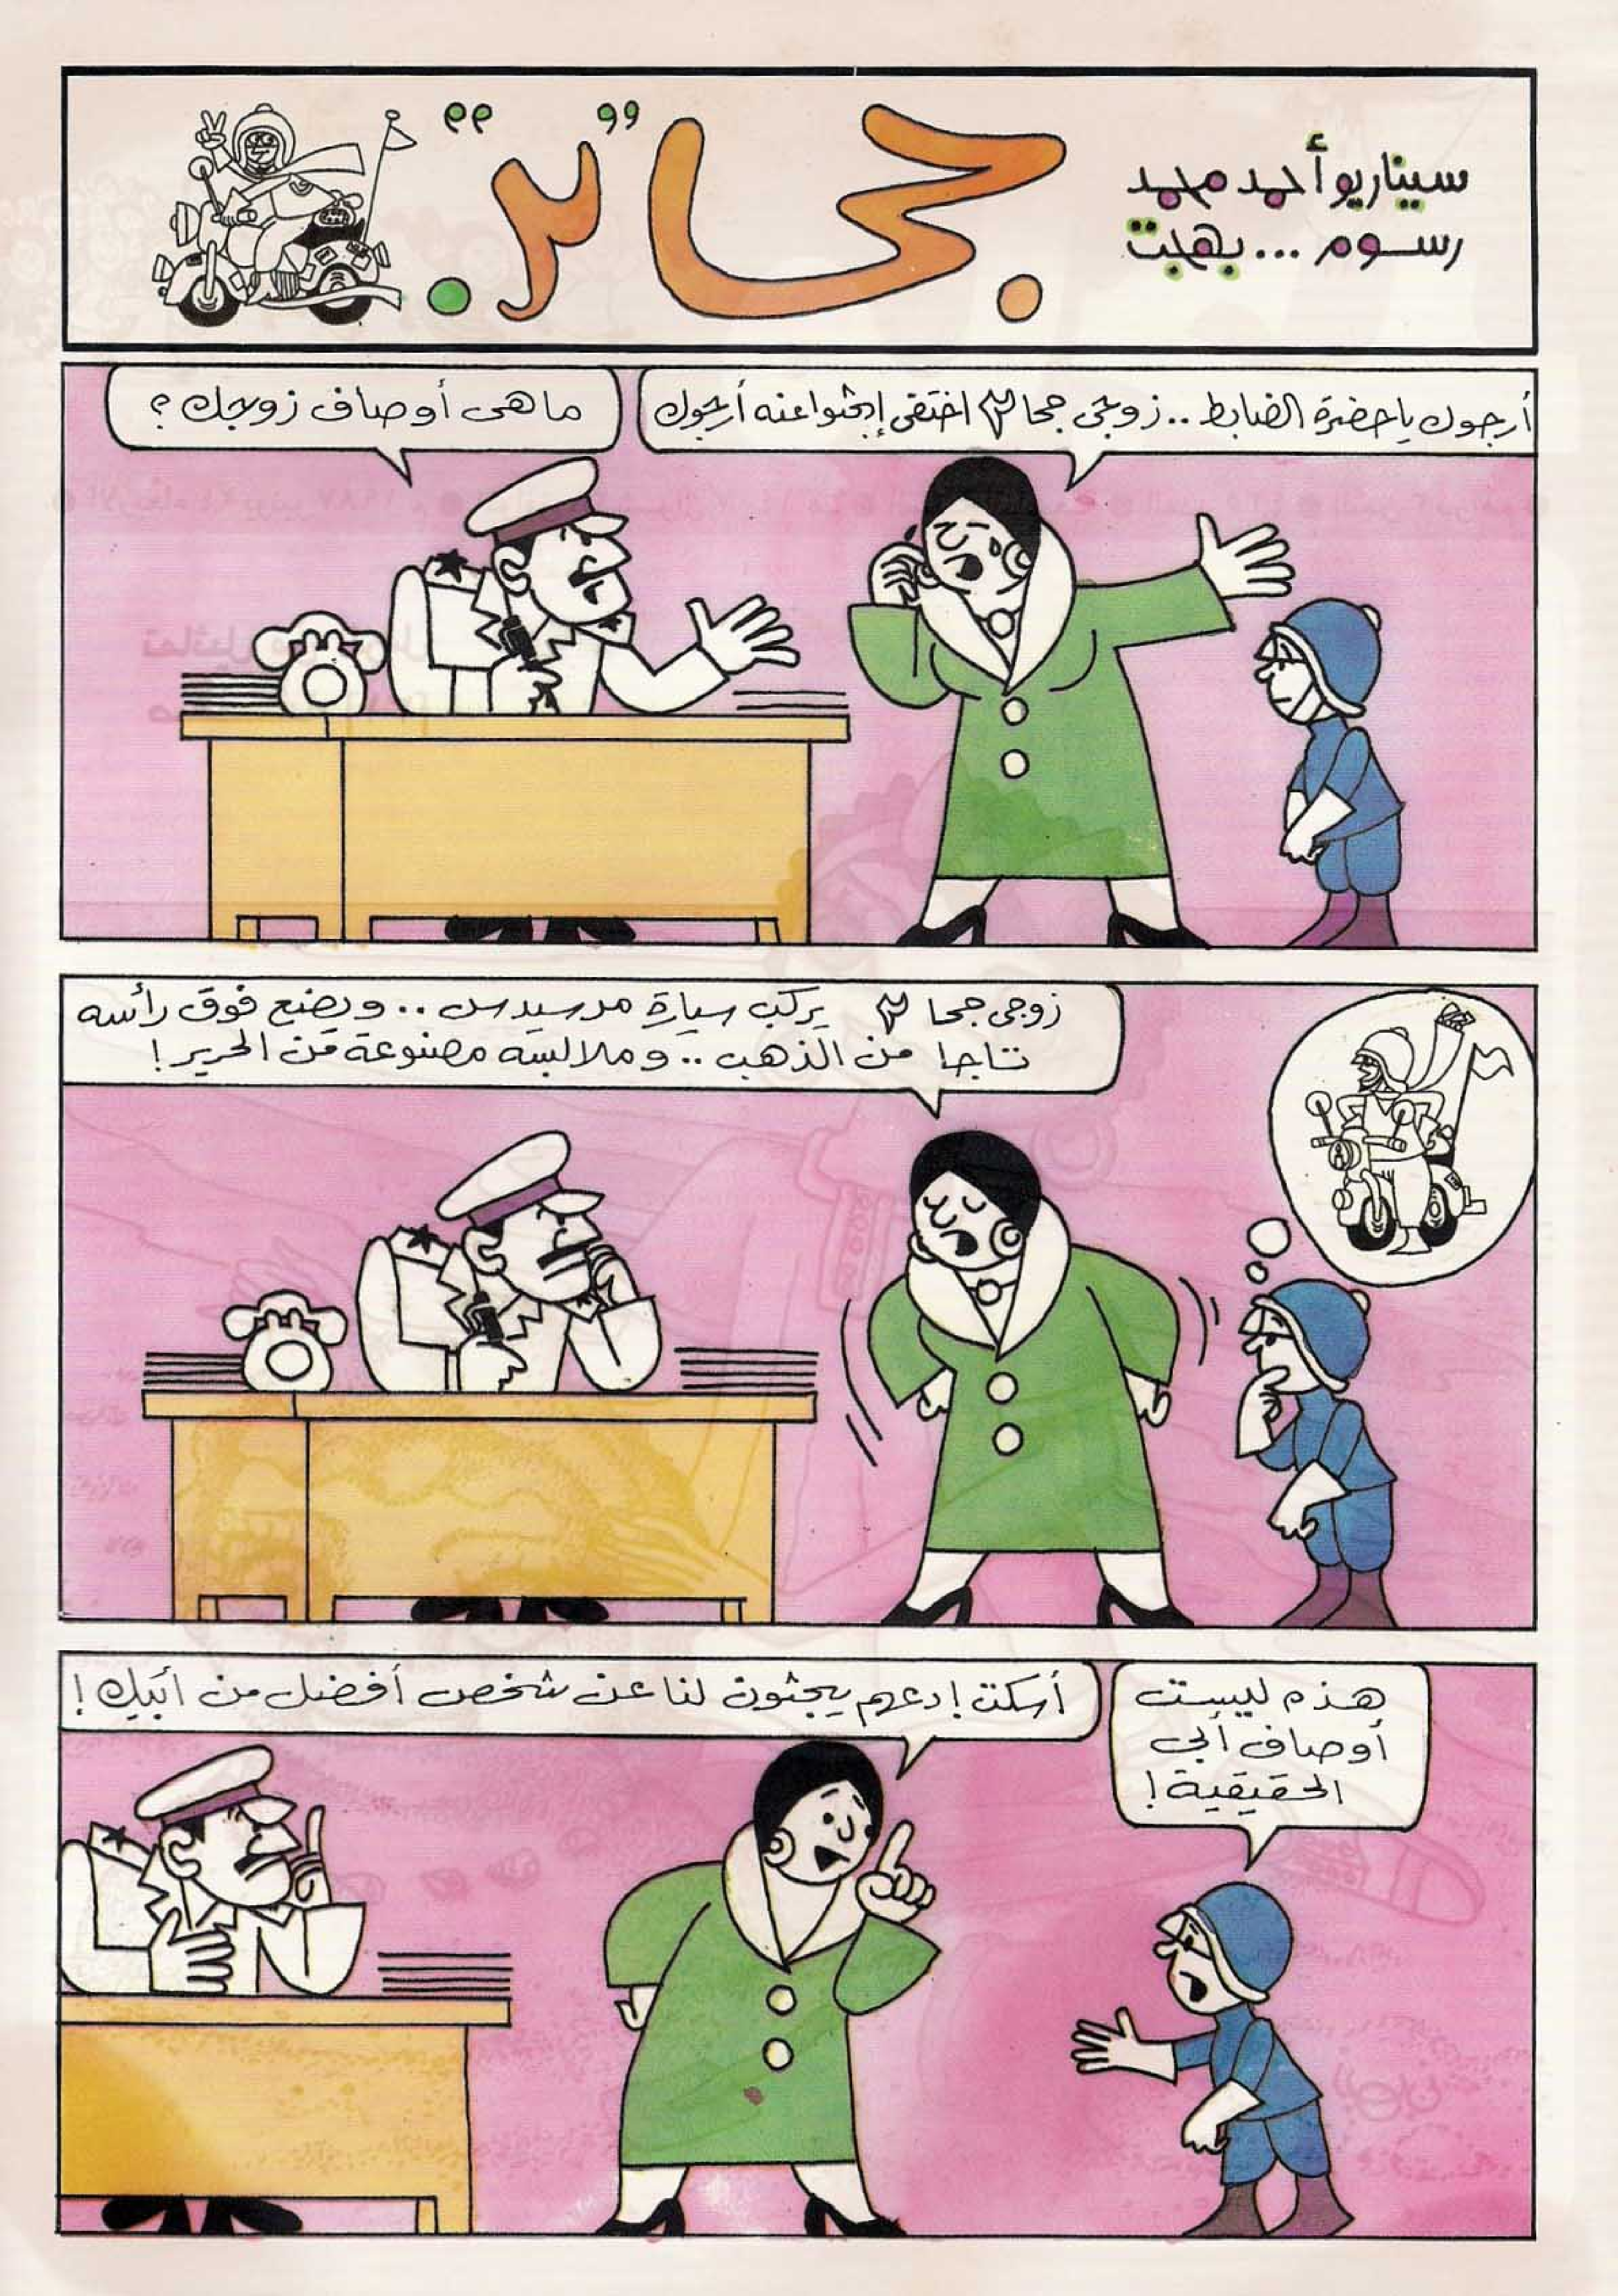 جحا
سيناريو أحمد محمد
رسوم ... بهجت
أرجوك يا حضرة الضابط .. زوجى جحا اختفى إبحثوا عنه أرجوك
ما هى أوصاف زوجك ؟
زوجى جحا يركب سيارة مرسيدس .. ويضع فوق رأسه
تاجا من الذهب .. وملابسه مصنوعة من الحرير !
هذه ليست
أوصاف أبى
الحقيقية !
أسكت ! دعهم يبحثون لنا عن شخص أفضل من أبيك !